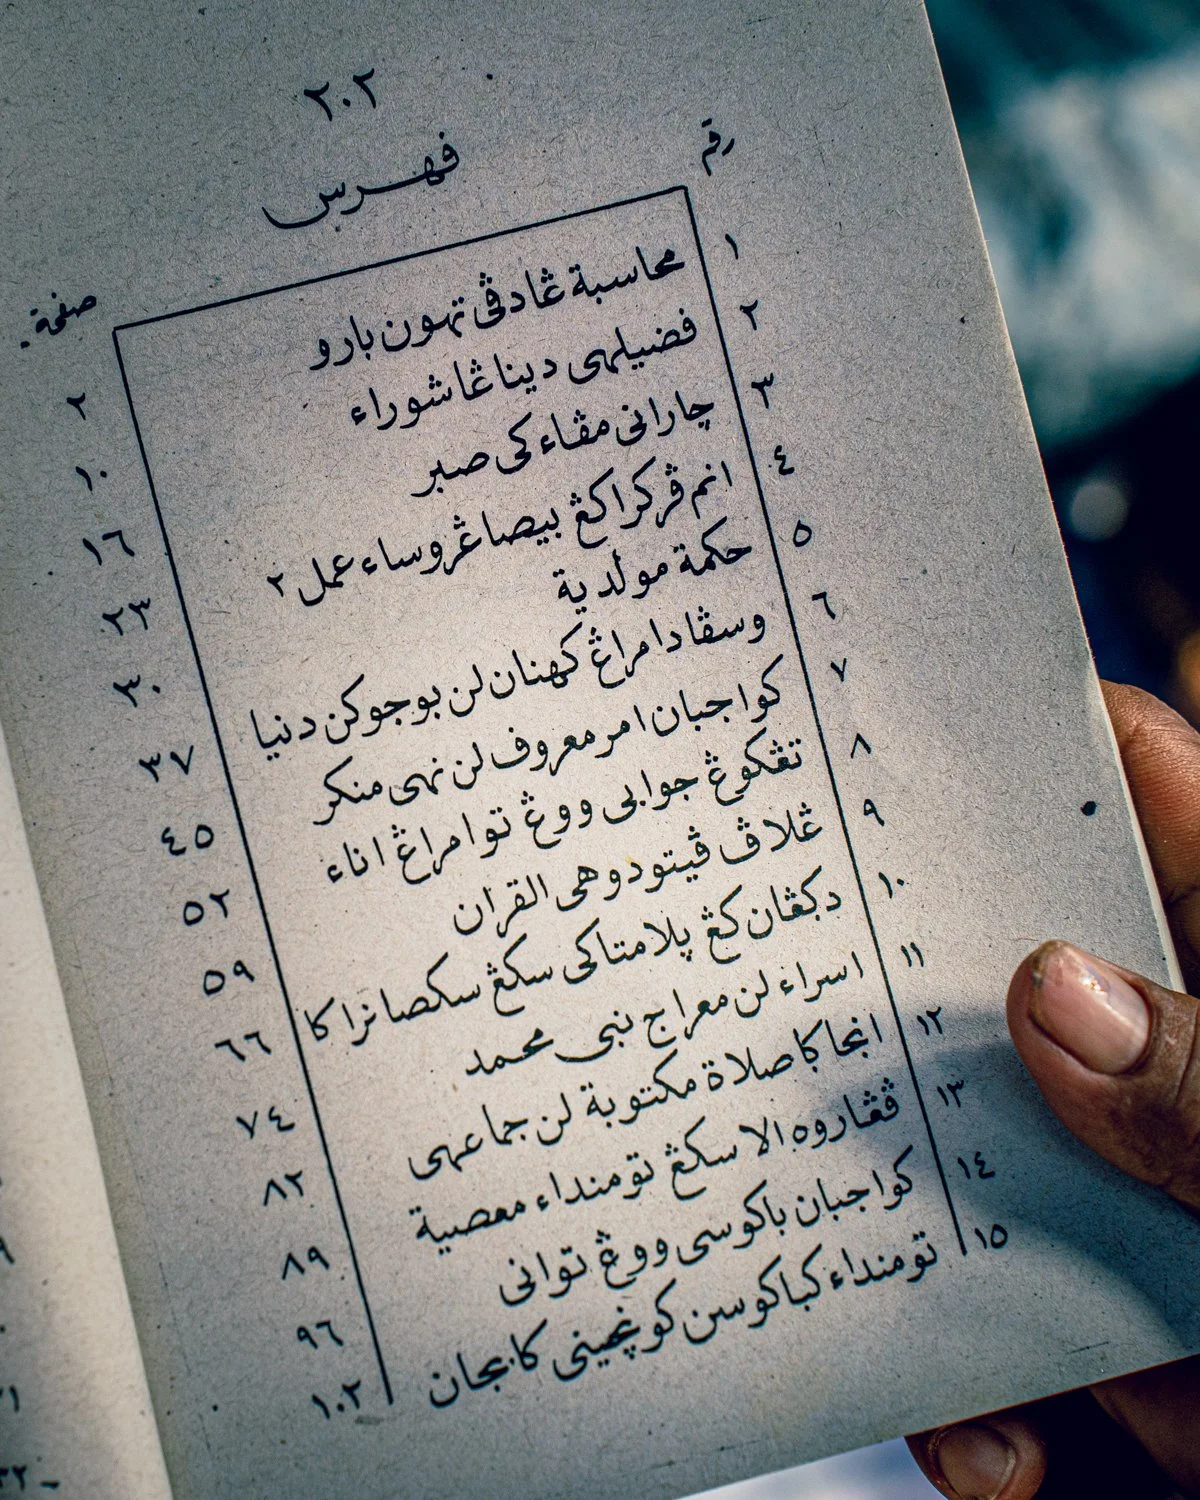 ٢٠٢
فهرس
رقم صفحة.
١ محاسبة ڠادڤي تهون بارو ٢
٢ فضيلهى دينا ڠاشوراء ١٠
٣ چارانى مڤاءكى صبر ١٦
٤ انم ڤركرا كڠ بيصا ڠروساء عمل ٢ ٢٣
٥ حكمة مولدية ٣٠
٦ وسڤادا مراڠ كهنان لن بوجوكن دنيا ٣٧
٧ كواجبان امر معروف لن نهى منكر ٤٥
٨ تڠكوڠ جوابى ووڠ توا مراڠ اناء ٥٢
٩ ڠلاڤ ڤيتودوهى القران ٥٩
١٠ دڮڠان كڠ پلامتاكى سكڠ سكصا نراكا ٦٦
١١ اسراء لن معراج نبى محمد ٧٤
١٢ انجاڮا صلاة مكتوبة لن جماعهى ٨٢
١٣ ڤڠاروه الا سكڠ تومنداء معصية ٨٩
١٤ كواجبان باكوسى ووڠ توانى ٩٦
١٥ تومنداء كباكوسن كوڠچينى كابجان ١٠٢